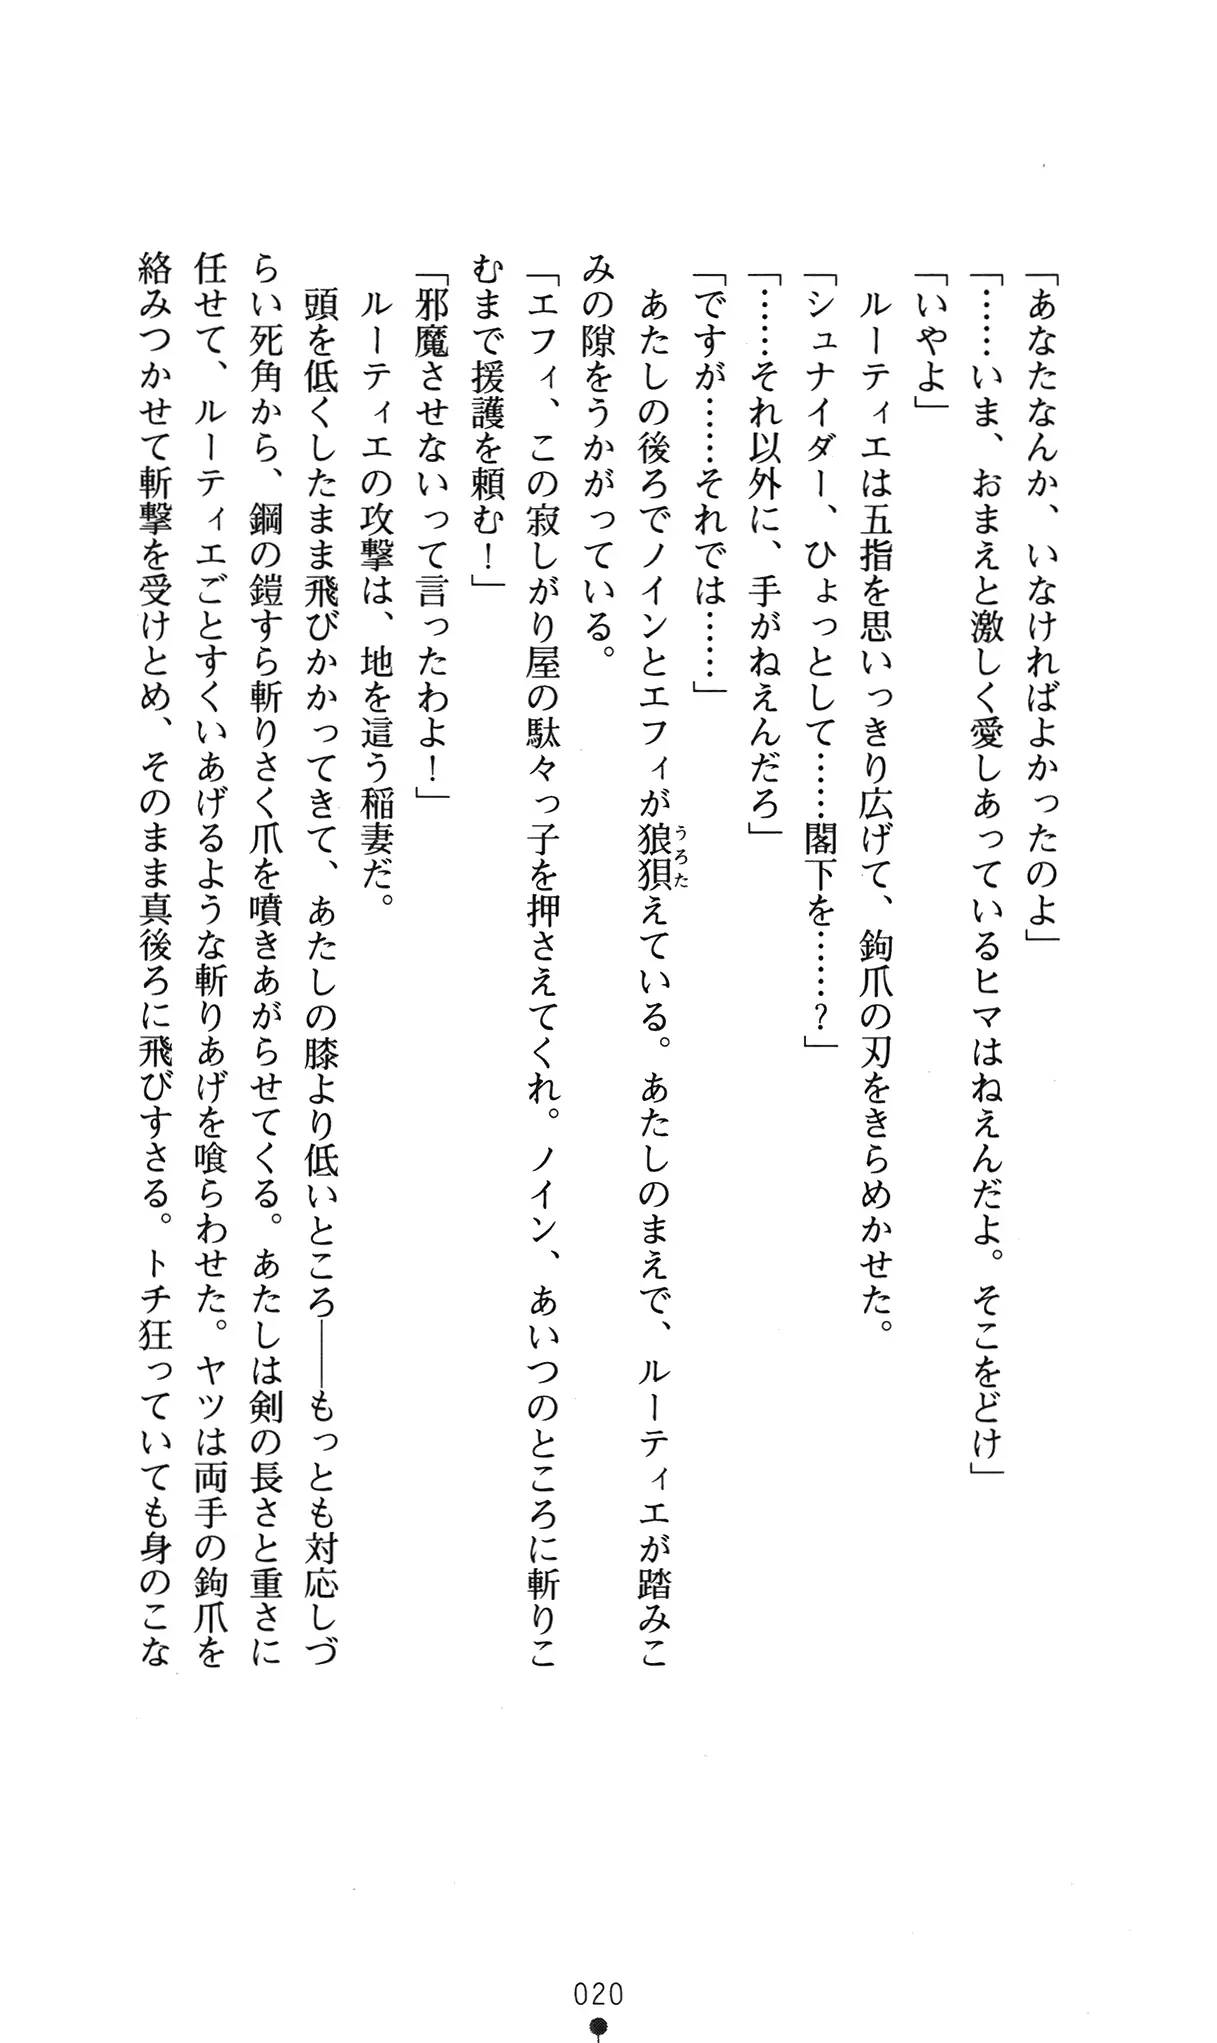 「あなたなんか、いなければよかったのよ」
「……いま、おまえと激しく愛しあっているヒマはねえんだよ。そこをどけ」
「いやよ」
　ルーティエは五指を思いっきり広げて、鉤爪の刃をきらめかせた。
「シュナイダー、ひょっとして……閣下を……？」
「……それ以外に、手がねえんだろ」
「ですが……それでは……」
　あたしの後ろでノインとエフィが狼狽うろたえている。あたしのまえで、ルーティエが踏みこ
みの隙をうかがっている。
「エフィ、この寂しがり屋の駄々っ子を押さえてくれ。ノイン、あいつのところに斬りこ
むまで援護を頼む！」
「邪魔させないって言ったわよ！」
　ルーティエの攻撃は、地を這う稲妻だ。
　頭を低くしたまま飛びかかってきて、あたしの膝より低いところ――もっとも対応しづ
らい死角から、鋼の鎧すら斬りさく爪を噴きあがらせてくる。あたしは剣の長さと重さに
任せて、ルーティエごとすくいあげるような斬りあげを喰らわせた。ヤツは両手の鉤爪を
絡みつかせて斬撃を受けとめ、そのまま真後ろに飛びすさる。トチ狂っていても身のこな
020